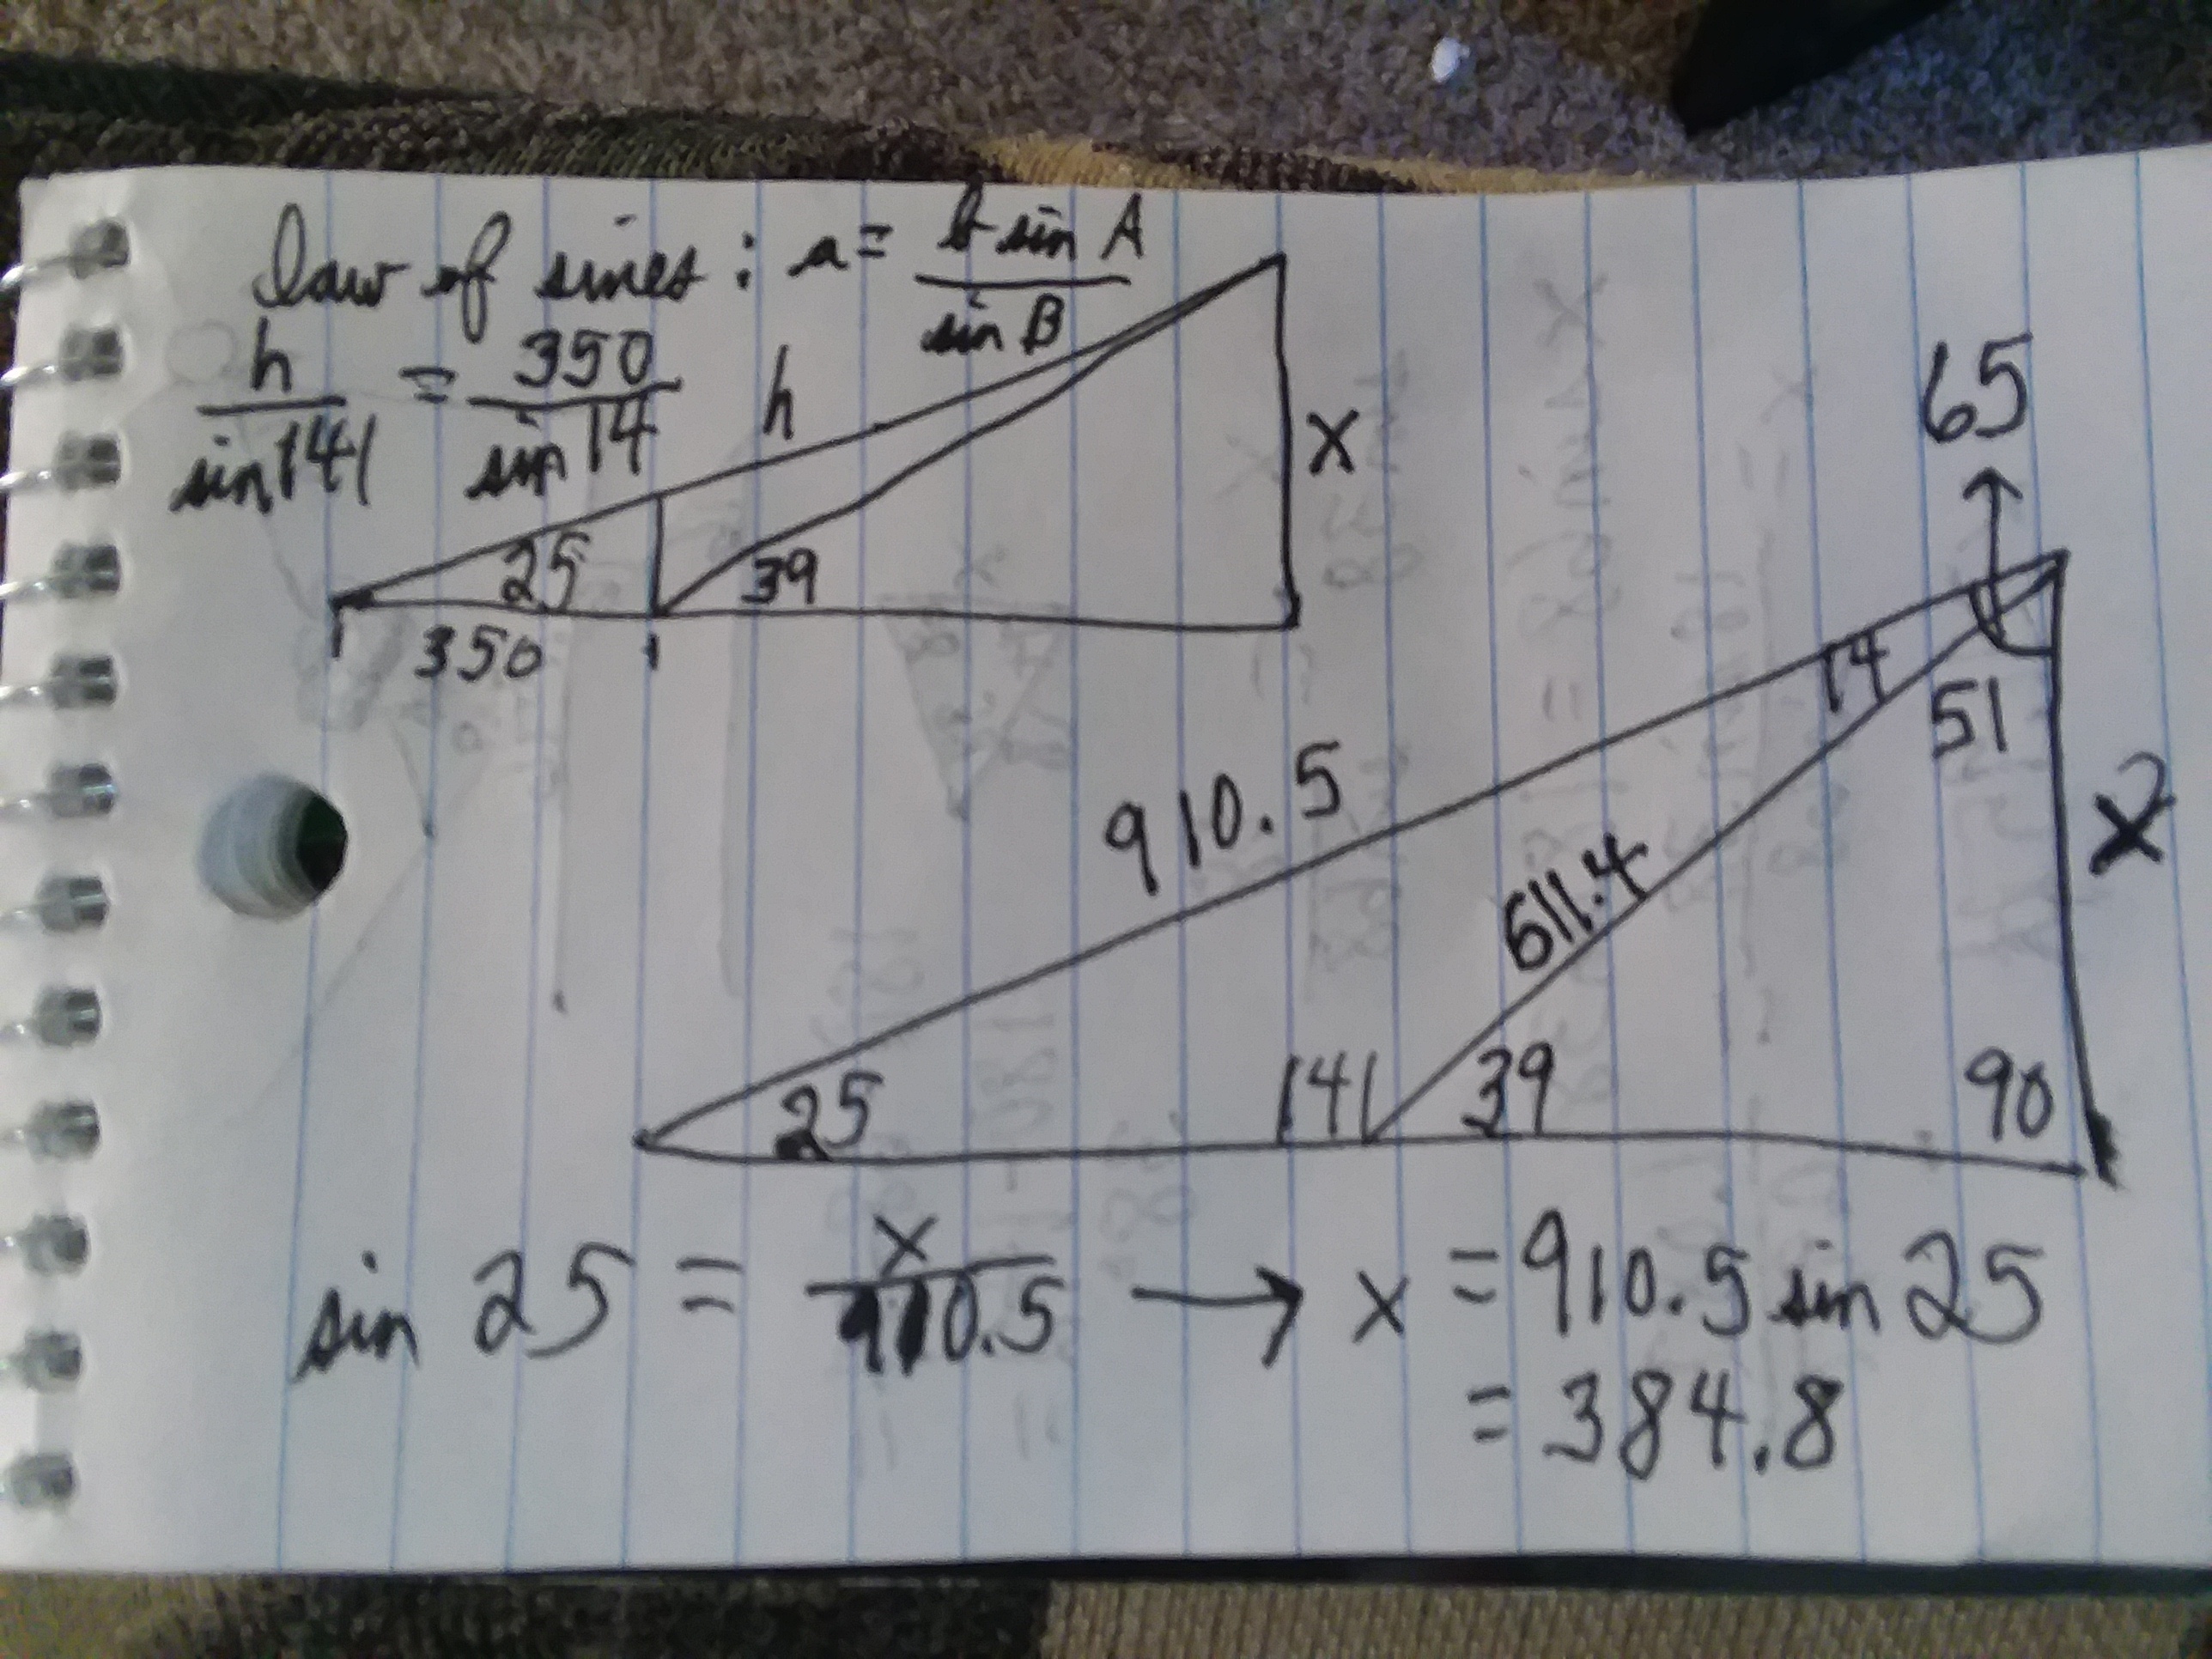 law of sines : a = b sin A / sin B
h / sin 141 = 350 / sin 14
h
x
25
39
350
65
14
51
910.5
611.4
x
25
141
39
90
sin 25 = x / 910.5 → x = 910.5 sin 25
= 384.8